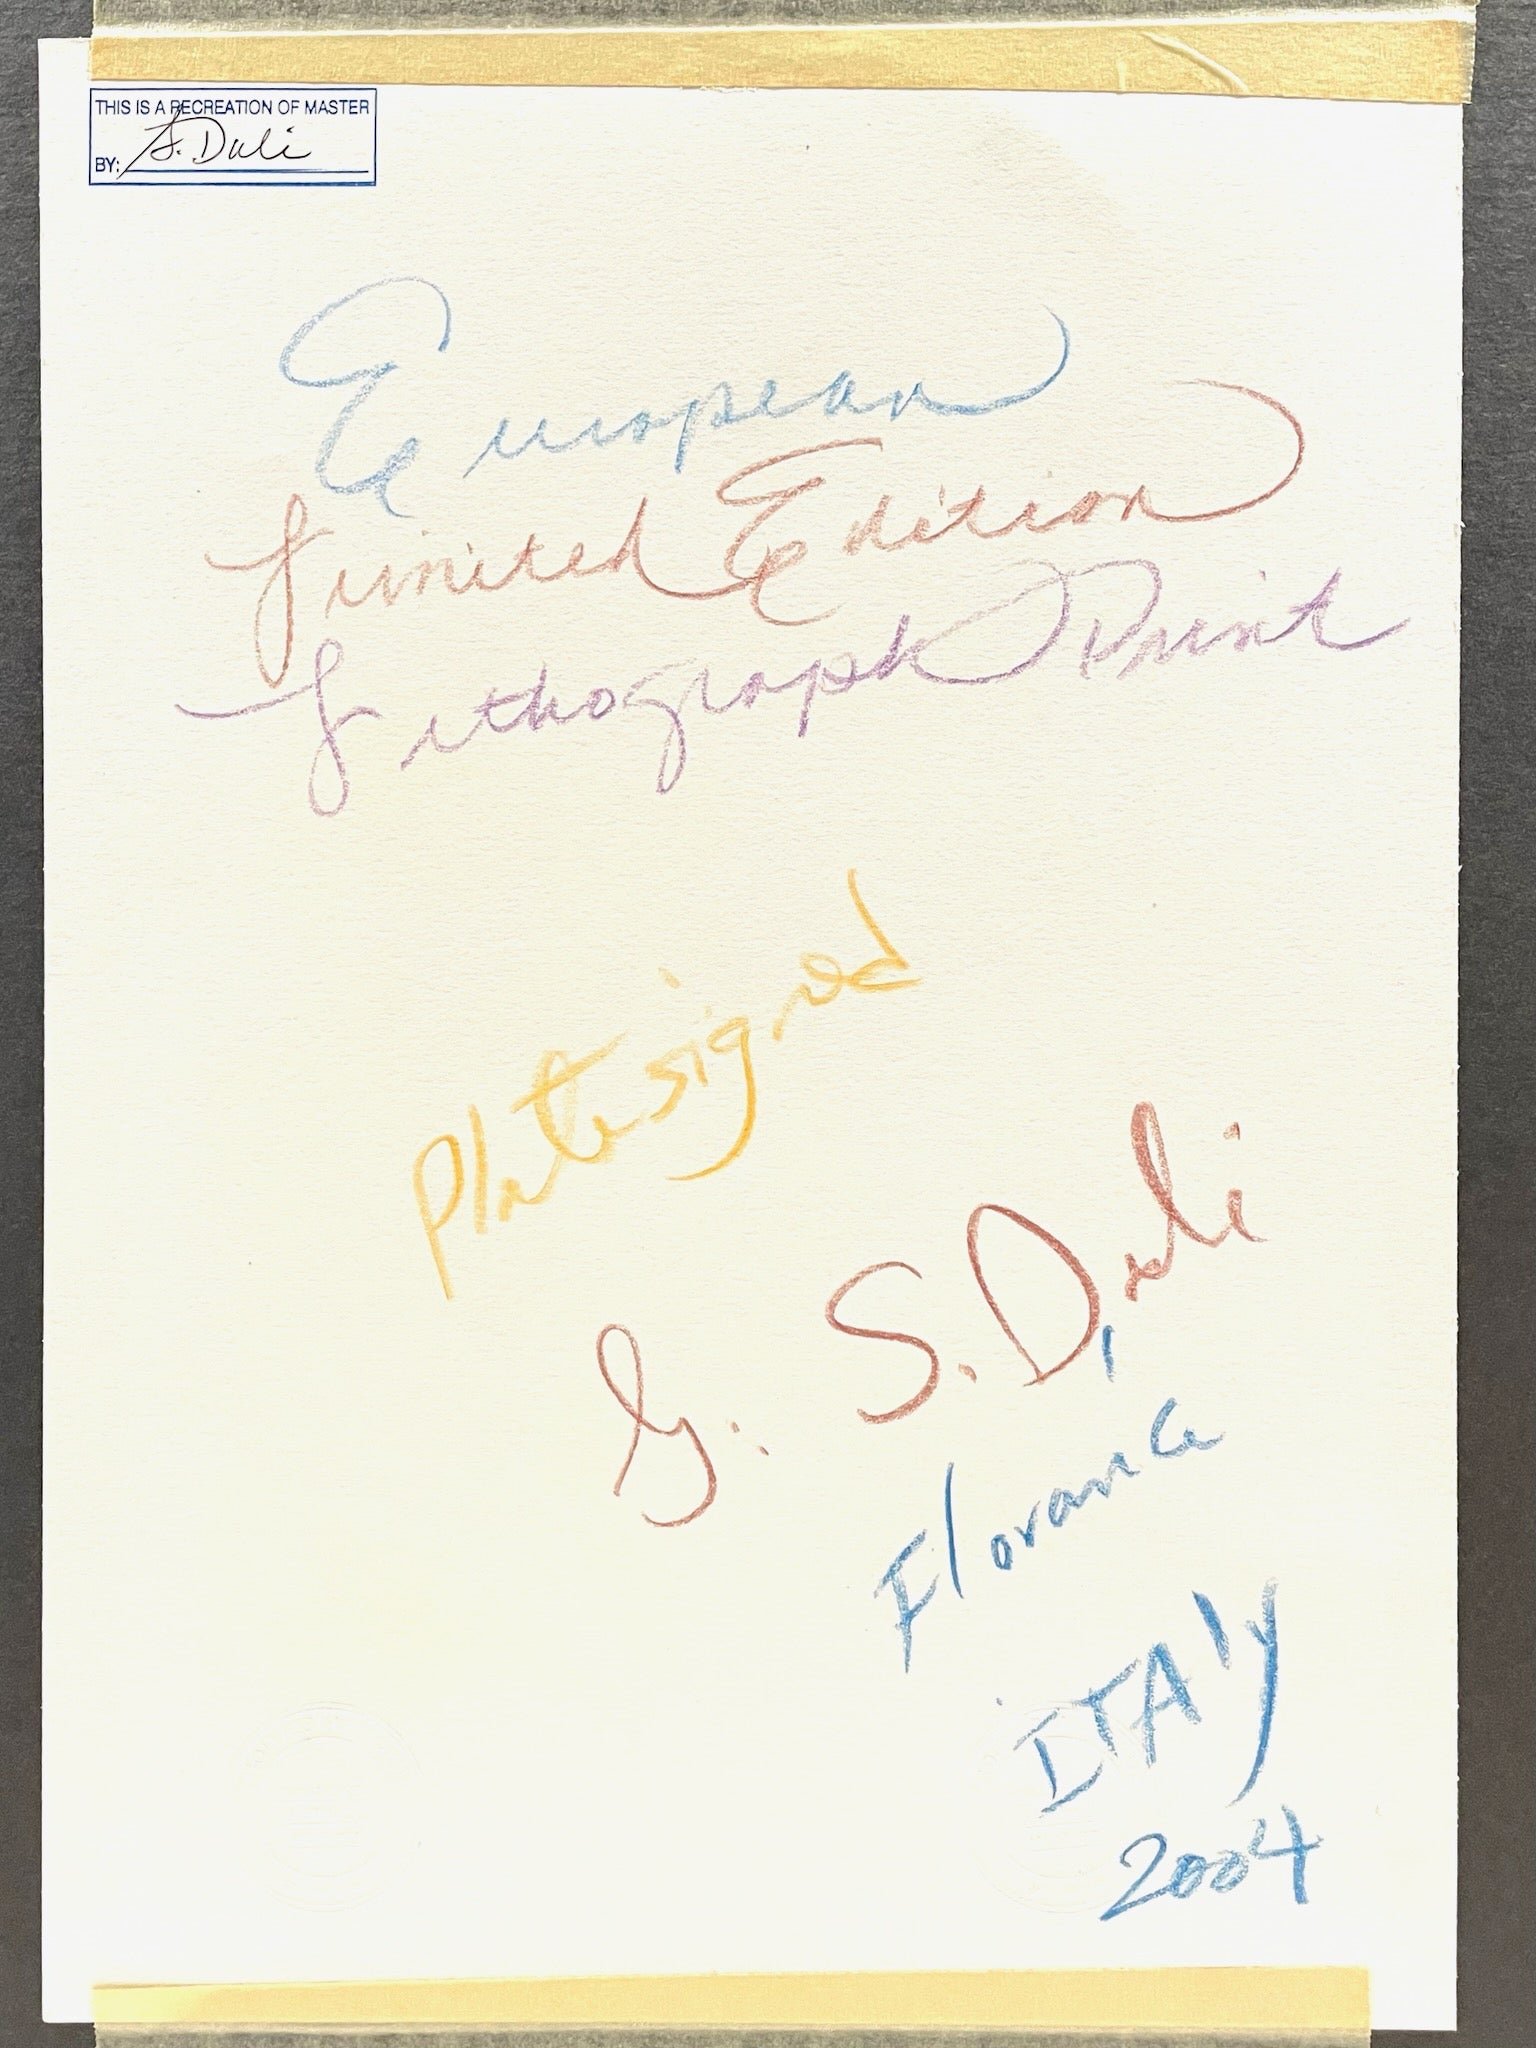 THIS IS A RECREATION OF MASTER
BY: S. Dali
European
Limited Edition
Lithograph Print
Plate signed
G. S. Dali,
Florance
ITAly
2004